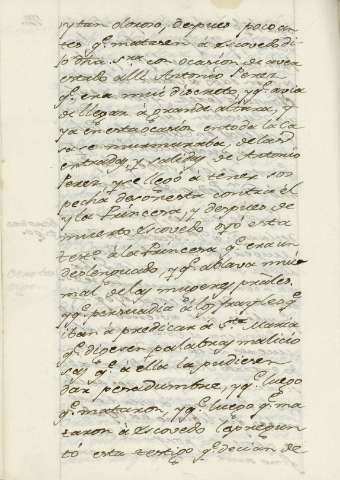 y tan oloroso, y despues poco an
tes q.e matasen à Escovedo di
jo dha S.ra con ocasion de aver
estado alli Antonio Perez
q.e era mui discreto, y q.e avia
de llegar à grande altura, y
ya en esta ocasion en toda la ca
sa se murmuraba, de las
entradas, y salidas de Antonio
Perez, y se llegò à tener sos
pecha desonesta contra el
y la Princesa, y despues de
muerto Escovedo oyò esta
tg.o à la Princesa q.e era un
deslenguado, y q.e ablava mui
mal de las mugeres prales.
y q.e persuadia à los frayles q.e
iban à predicar à S.ta Maria
q.e digesen palabras malicio
sas q.e à ella la pudiesen
dar pesadumbre, y q.e luego
q.e mataron, y q.e luego q.e ma
taron à Escovedo le pregun
tò esta testigo q.e decian de